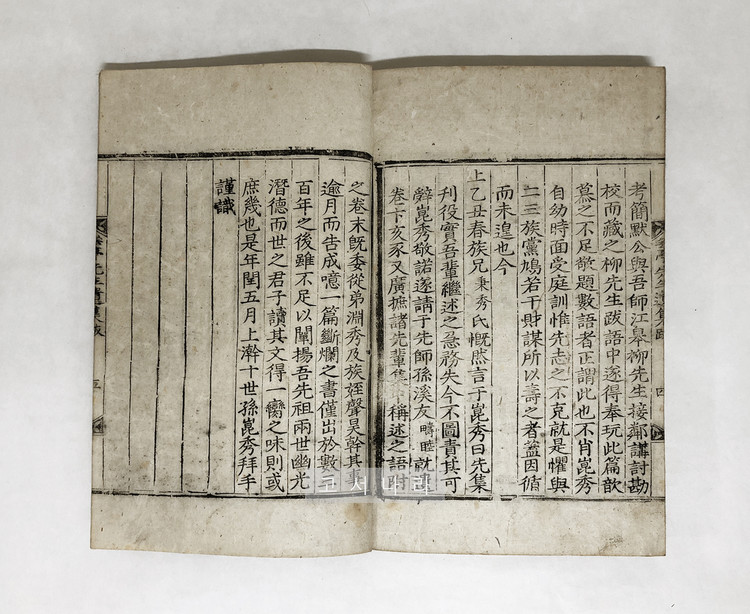 考簡默公與吾師江皋柳先生接鄰講討勘
校而藏之柳先生跋語中遂得奉玩此篇歆
慕之不足敬題數語者正謂此也不肖崑秀
自幼時面受庭訓惟先志之不克就是懼與
二三族黨鳩若干財謀所以壽之者蓋因循
而未遑也今
上乙丑春族兄秉秀氏慨然言于崑秀曰先集
刊役實吾輩繼述之急務失今不圖責其可
辭崑秀敬諾遂請于先師孫溪友疇睦就
卷卞亥豕又廣摭諸先輩集中稱述之語附
之卷末旣委從弟淵秀及族姪聲昊幹其事
逾月而告成噫一篇斷爛之書僅出於數
百年之後雖不足以闡揚吾先祖兩世幽光
潛德而世之君子讀其文得一臠之味則或
庶幾也是年閏五月上澣十世孫崑秀拜手
謹識
四
五
고서나라